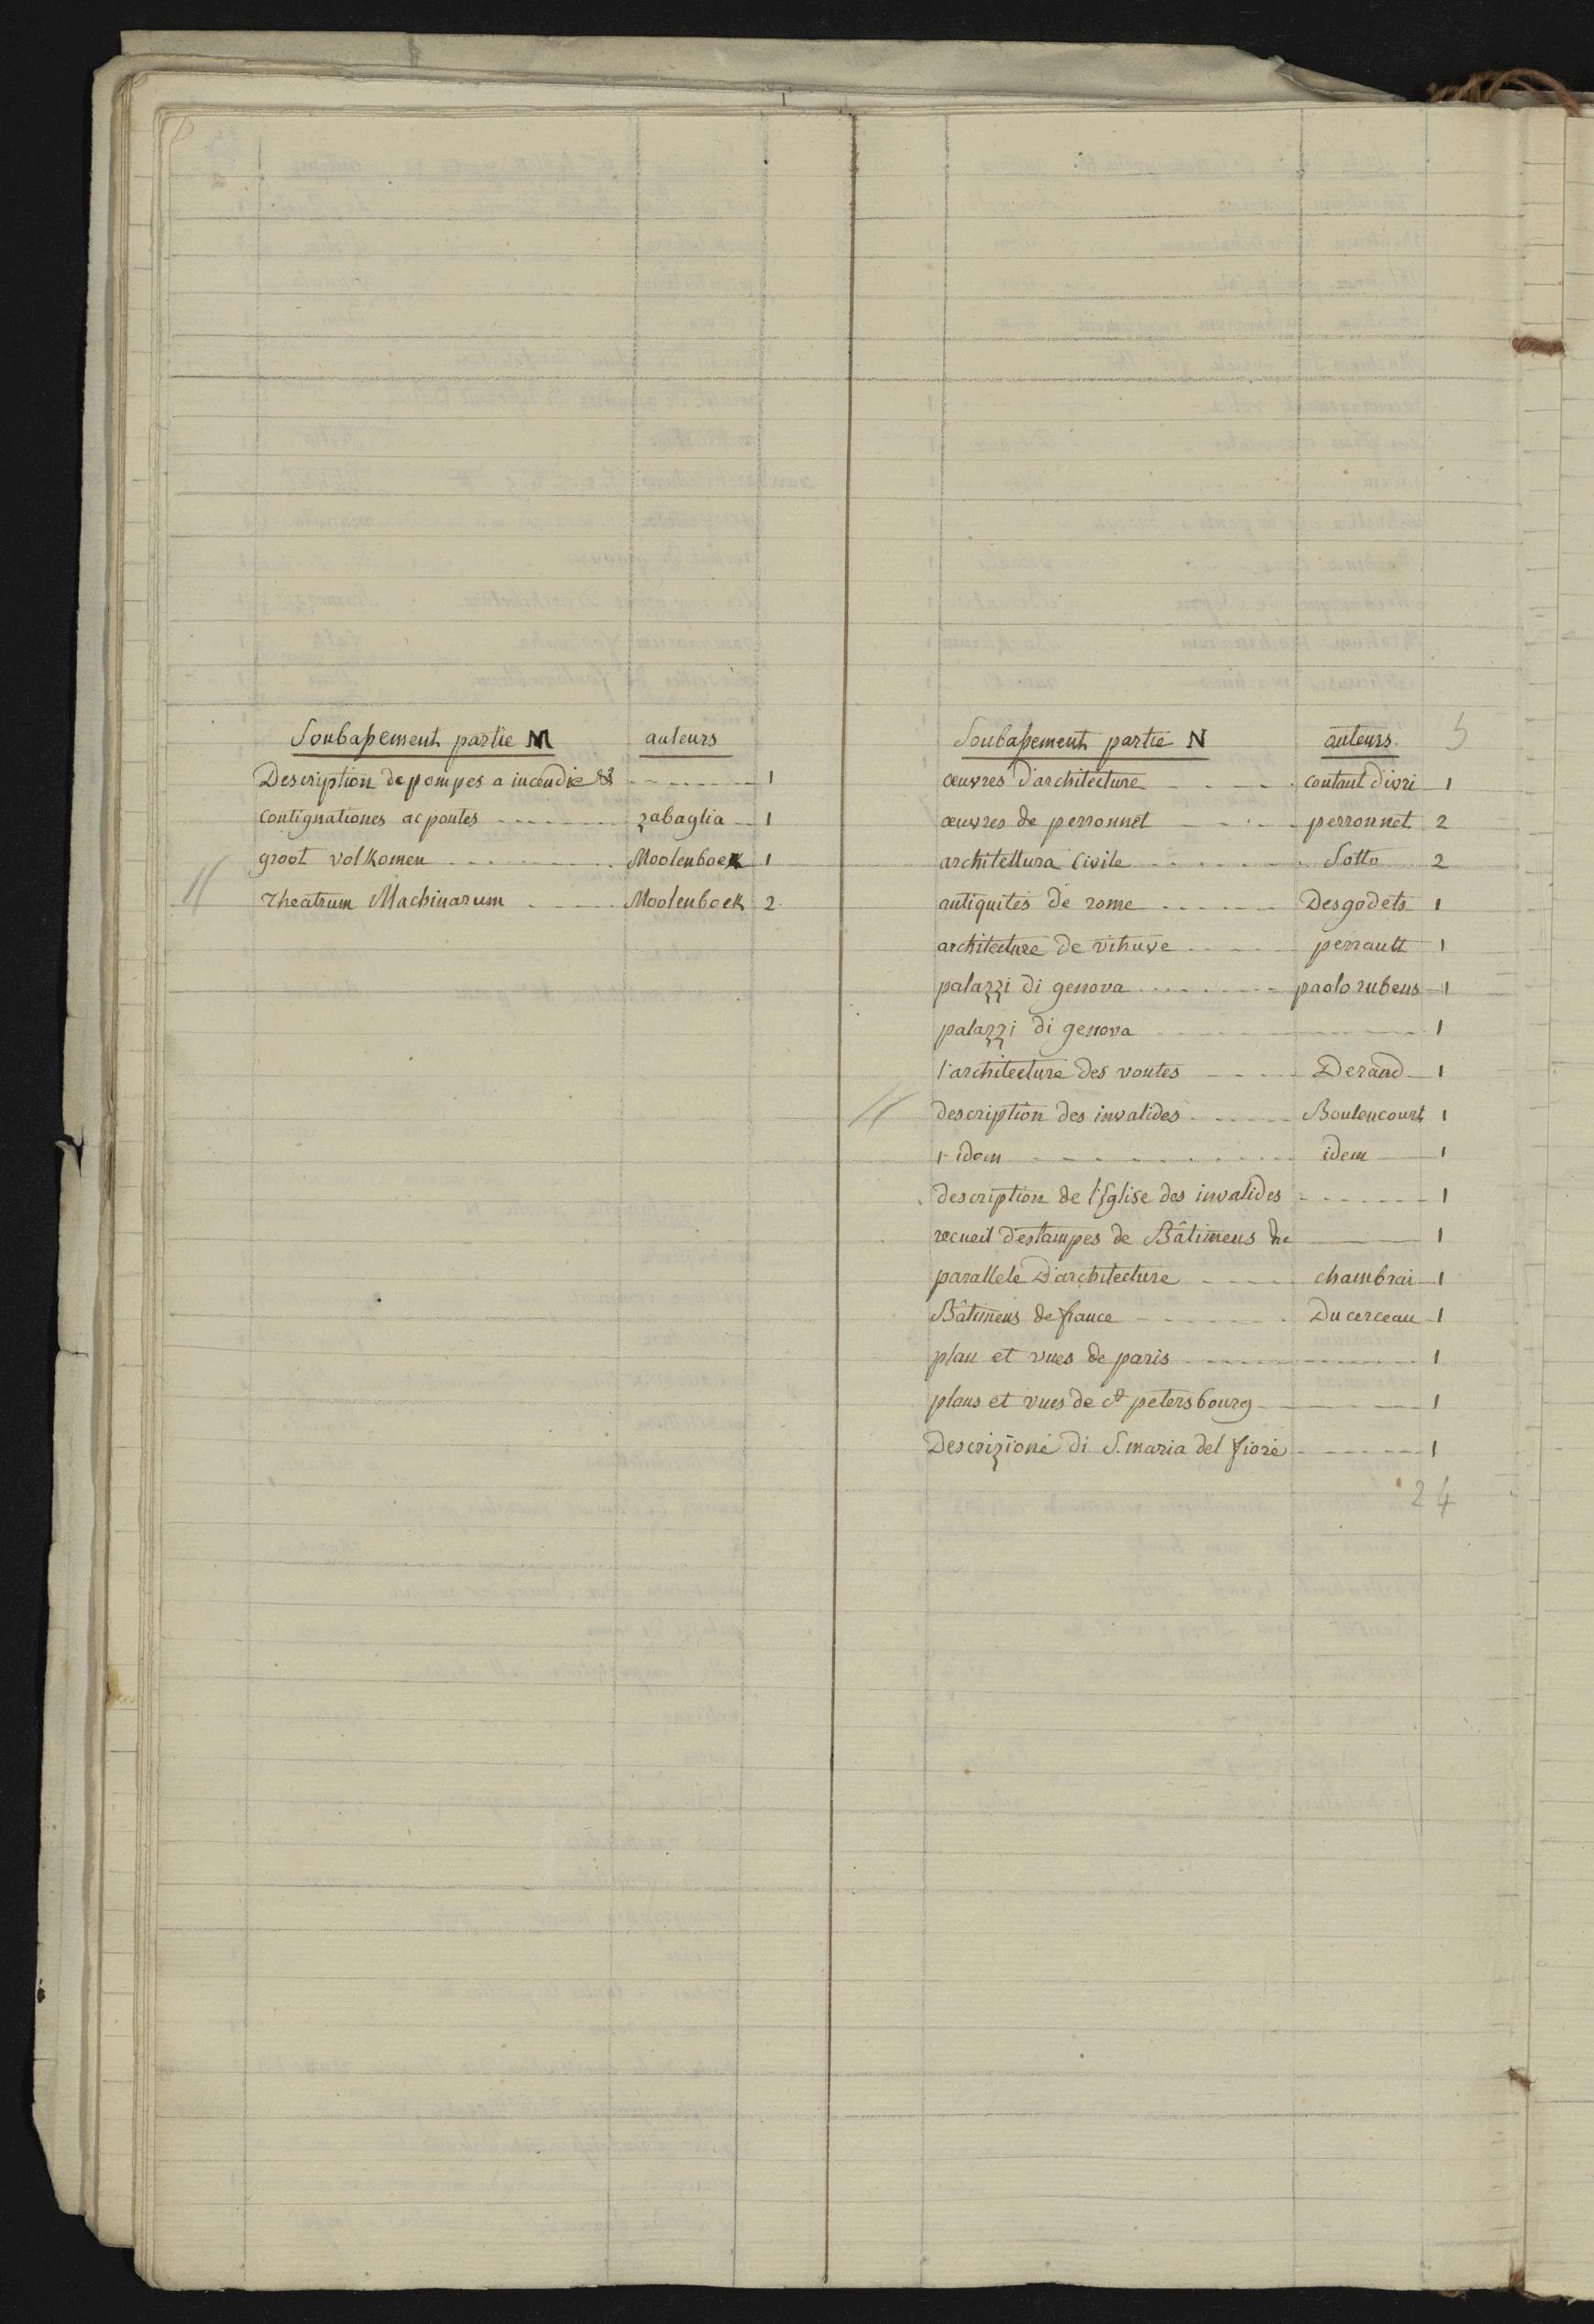 Soubassement partie M auteurs
Description de pompes a incendie & - - - - - - - 1
Contignationes ac pontes - - - - - - - zabaglia - - 1
groot volkomen - - - - - - - Moolenboek 1
Theatrum Machinarum - - - - - Moolenboek 2
Soubassement partie N auteurs. 5
œuvres d'architecture - - - - - contant d'ivri 1
œuvres de perronnet - - - - perronnet 2
architettura Civile - - - - - - Sotto 2
antiquités de rome - - - - - - Desgodets 1
architecture de vitruve - - - - - perrault 1
palazzi di genova - - - - - - - paolo rubens 1
palazzi di genova - - - - - - - 1
l'architecture des voutes - - - - Derand 1
description des invalides - - - - - Boulencourt 1
1 idem - - - - - - - - - idem 1
description de l'Eglise des invalides - - - - - - - 1
recueil d'estampes de Bâtimens &c 1
parallele d'architecture - - - - chambrai 1
Bâtimens de france - - - - - - Du cerceau 1
plan et vues de paris - - - - - - - 1
plans et vues de st petersbourg - - - - - 1
Descrizione di S. maria del fiore - - - - - - 1
24